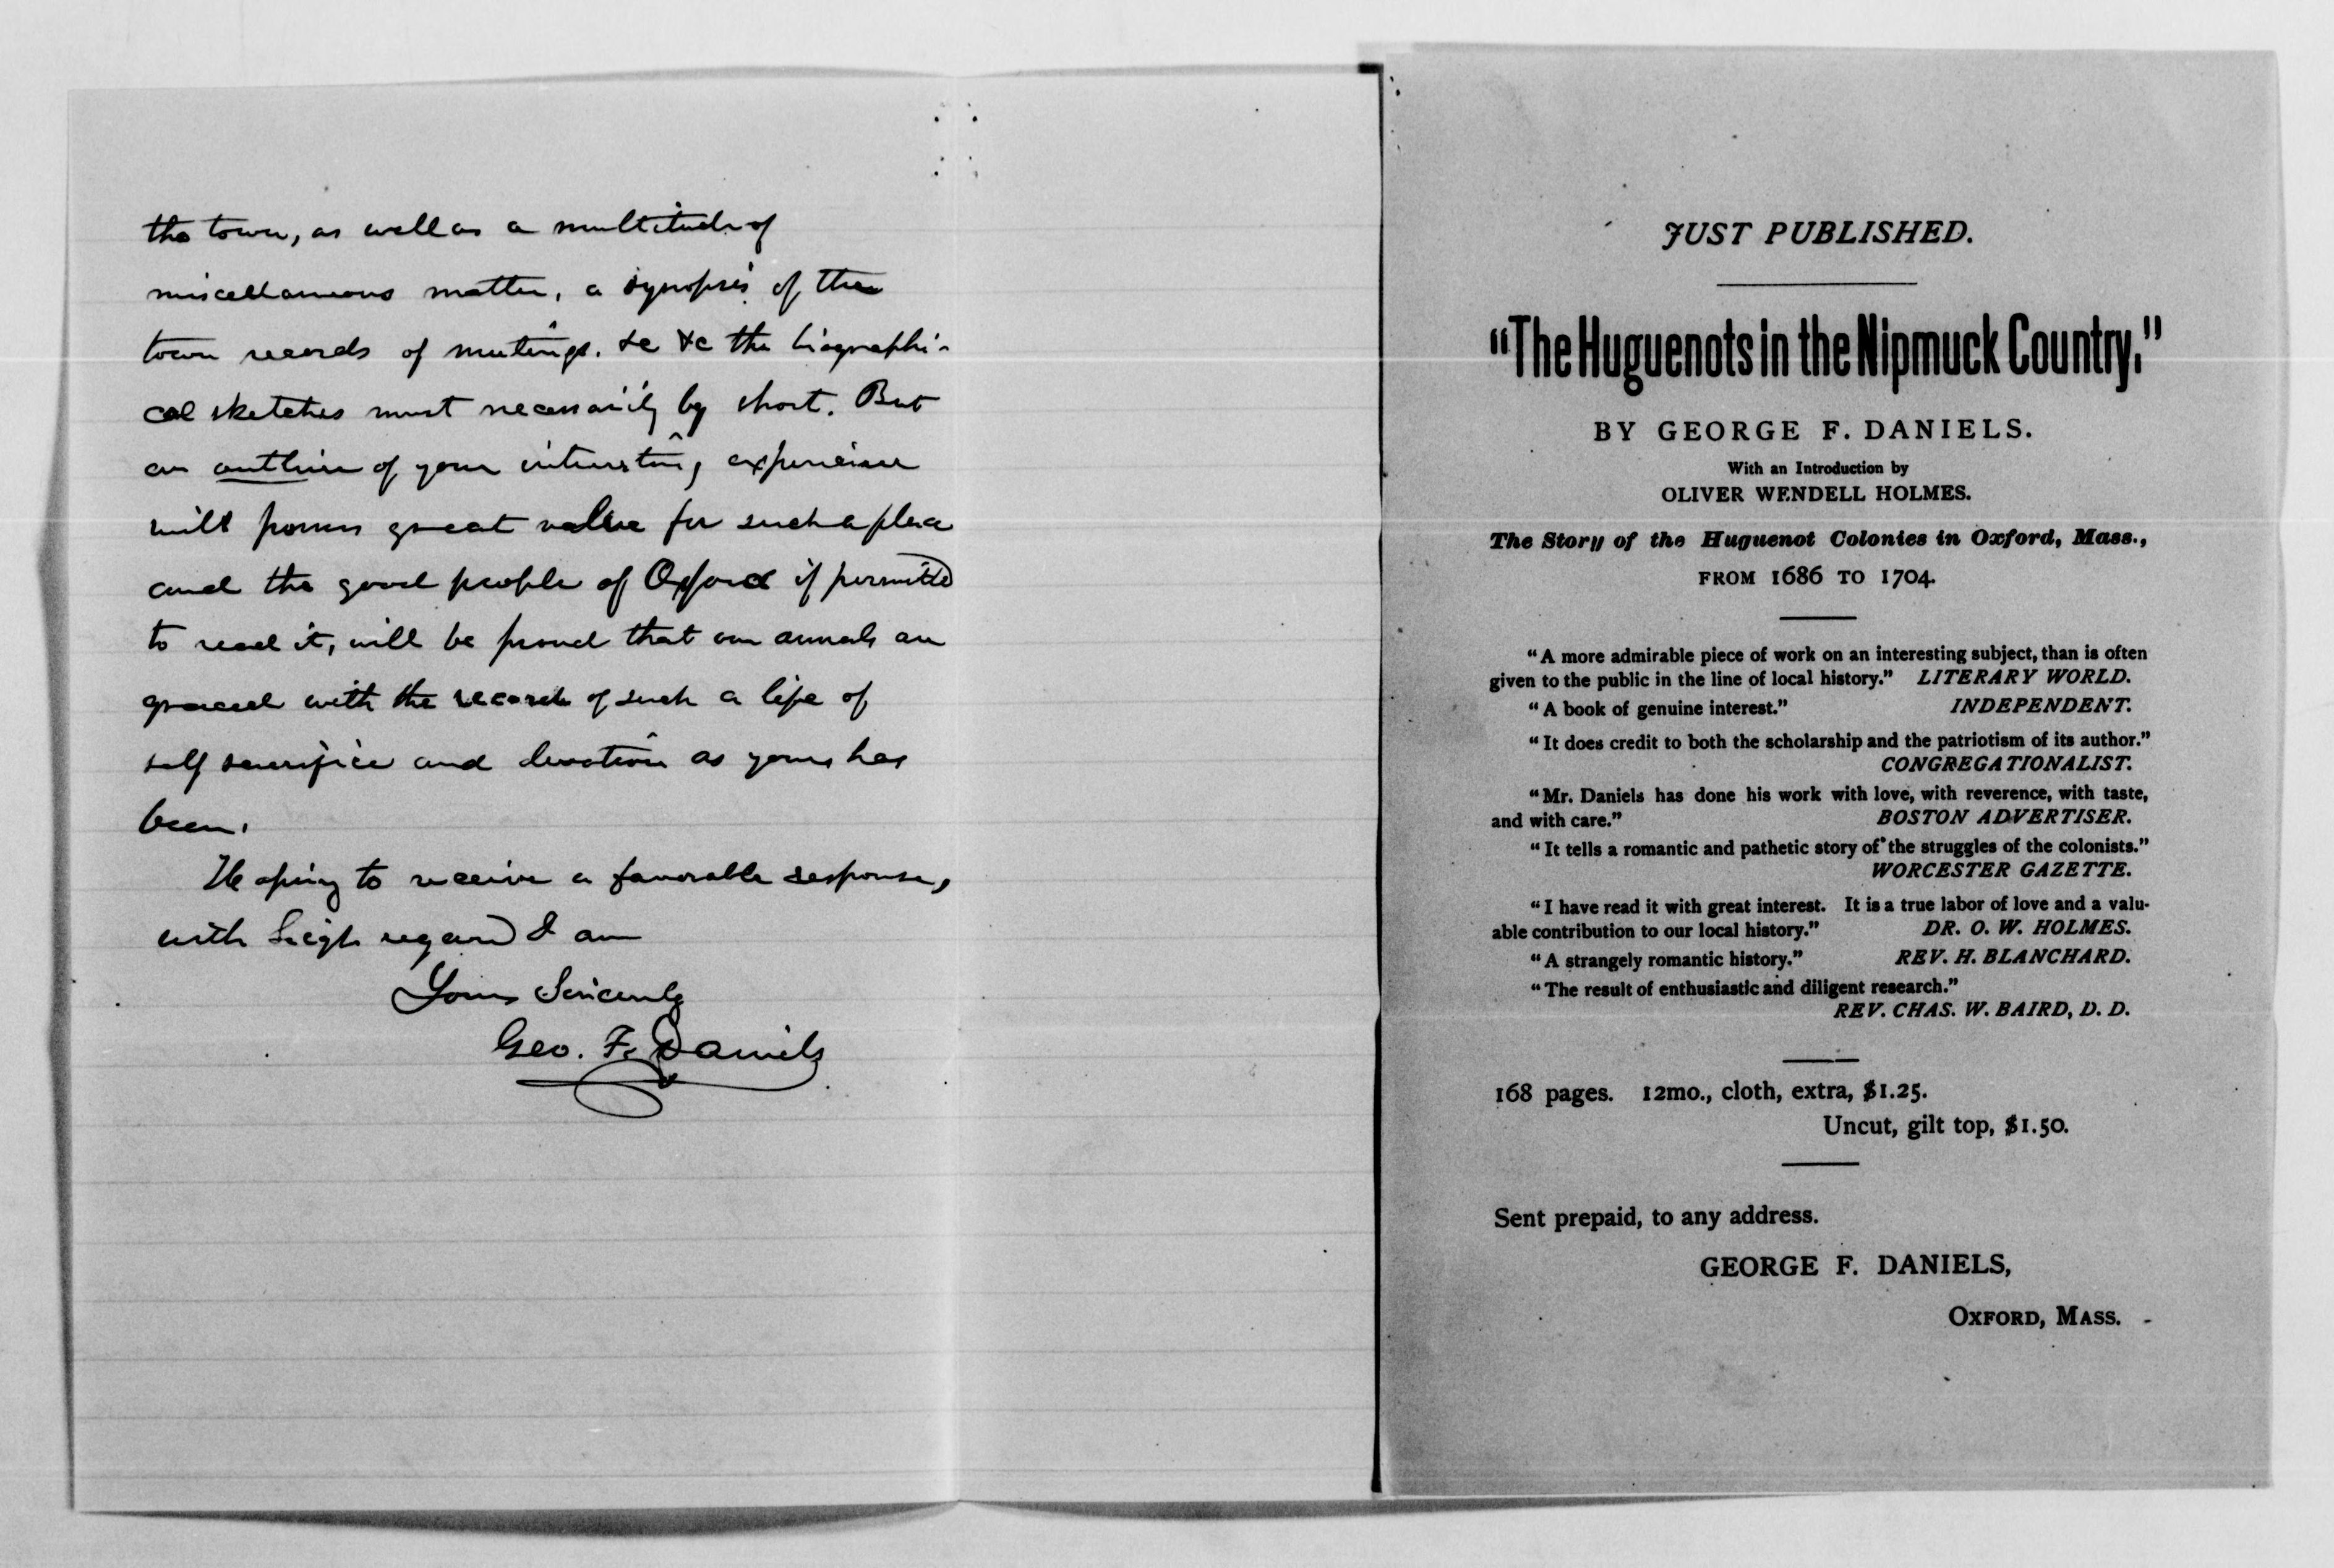 the town, as well as a multitude of
miscellaneous matter, a synopsis of the
town records of meetings. &c &c the biographi-
cal sketches must necessarily by short. But
an outline of your interesting experience
will possess great value for such a place
and the good people of Oxford if permitted
to read it, will be proud that our annals are
graced with the record of such a life of
self sacrifice and devotion as yours has
been.
Hoping to receive a favorable response,
with high regard I am
Yours Sincerely
Geo. F. Daniels
JUST PUBLISHED.
"The Huguenots in the Nipmuck Country."
BY GEORGE F. DANIELS.
With an Introduction by
OLIVER WENDELL HOLMES.
The Story of the Huguenot Colonies in Oxford, Mass.,
FROM 1686 TO 1704.
"A more admirable piece of work on an interesting subject, than is often
given to the public in the line of local history." LITERARY WORLD.
"A book of genuine interest." INDEPENDENT.
"It does credit to both the scholarship and the patriotism of its author."
CONGREGATIONALIST.
"Mr. Daniels has done his work with love, with reverence, with taste,
and with care." BOSTON ADVERTISER.
"It tells a romantic and pathetic story of the struggles of the colonists."
WORCESTER GAZETTE.
"I have read it with great interest. It is a true labor of love and a valu-
able contribution to our local history." DR. O. W. HOLMES.
"A strangely romantic history." REV. H. BLANCHARD.
"The result of enthusiastic and diligent research."
REV. CHAS. W. BAIRD, D. D.
168 pages. 12mo., cloth, extra, $1.25.
Uncut, gilt top, $1.50.
Sent prepaid, to any address.
GEORGE F. DANIELS,
OXFORD, MASS.